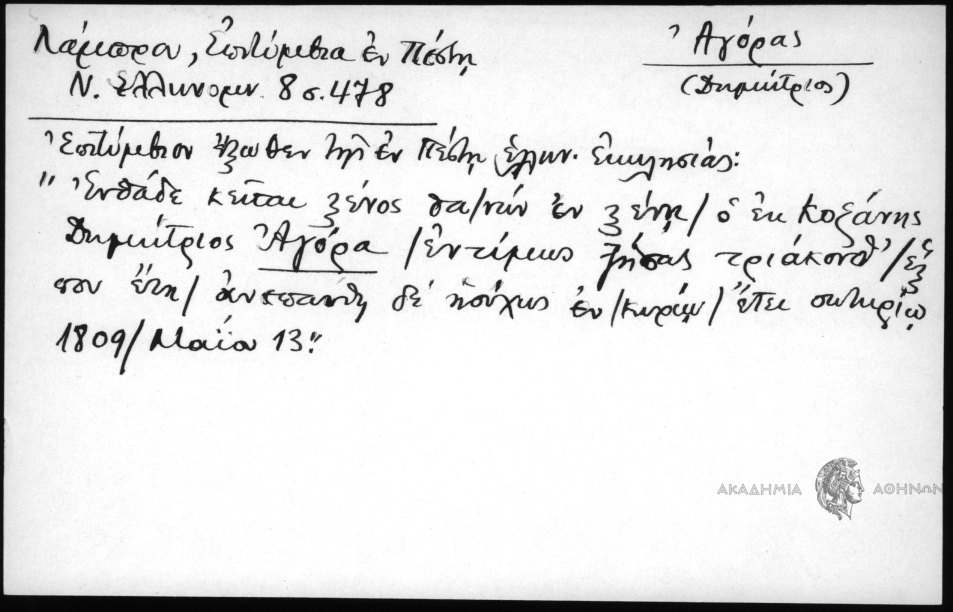 Λάμπρου, Ἐπιτύμβια ἐν Πέστῃ
Ἀγόρας
Ν. Ἑλληνομν. 8 σ. 478
(Δημήτριος)
Ἐπιτύμβιον ἔξωθεν τῆς ἐν Πέστῃ ἑλλην. ἐκκλησίας:
"Ἐνθάδε κεῖται ξένος θα/νὼν ἐν ξένῃ/ ὁ ἐκ Κοζάνης
Δημήτριος Ἀγόρα /ἐντίμως ζήσας τριάκονθ'/ ἕξ
που ἔτη/ ἀνεπαύθη δέ ἡσύχως ἐν/Κυρίῳ/ ἔτει σωτηρίῳ
1809/ Μαΐου 13."
ΑΚΑΔΗΜΙΑ ΑΘΗΝΩΝ